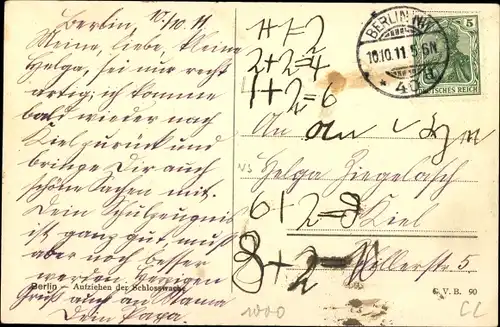 Berlin, 10/10. 11
Meine, liebe, kleine
Helga, sei nur recht
artig; ich komme
bald wieder nach
Kiel zurück und
bringe Dir auch
schöne Sachen mit.
Dein Schulzeugnis
ist ganz gut, muß
aber noch besser
werden.
Gruß auch an Mama
Dein Papa
Berlin – Aufziehen der Schlosswache
1+1=2
2+2=4
4+2=6
An an
Helga
6+2=8
Kiel
8+2=
5.
BERLIN NW
10.10.11 5-6N
* 40
5
DEUTSCHES REICH
G. V. B. 90
1000
CL
VS